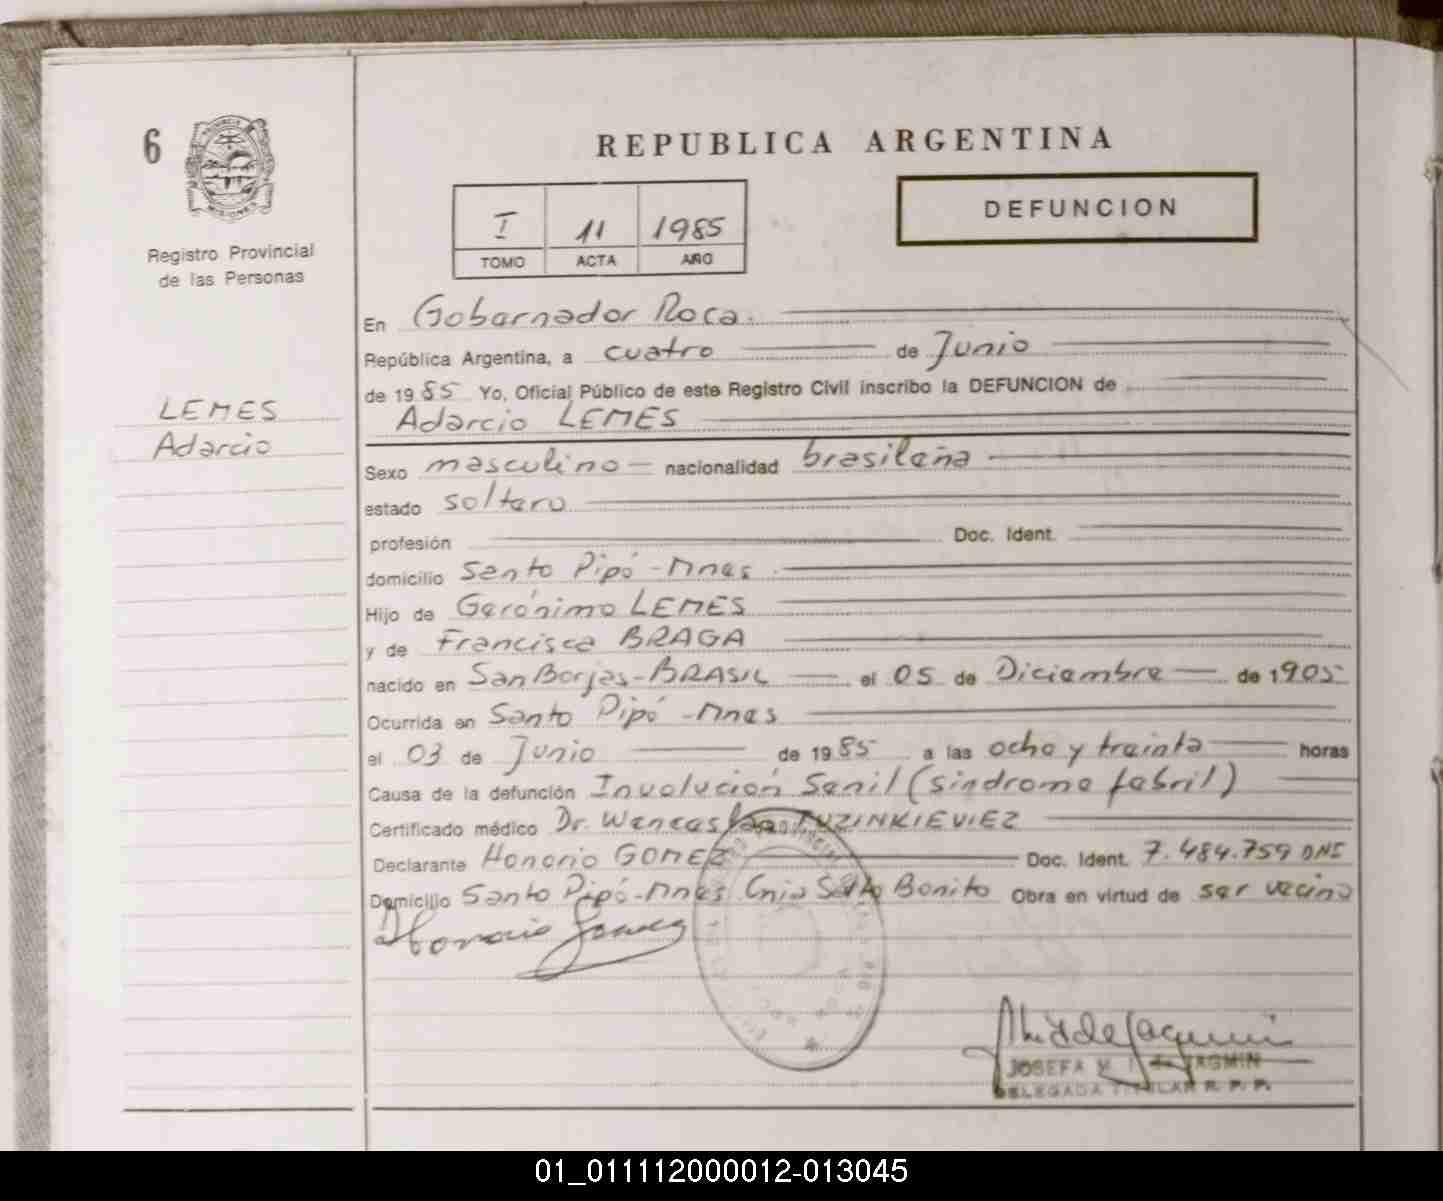 6
PROVINCIA
MISIONES
Registro Provincial
de las Personas
LEMES
Adarcio
REPUBLICA ARGENTINA
I 11 1985
TOMO ACTA AÑO
DEFUNCION
En Gobernador Roca.
República Argentina, a cuatro de Junio
de 1985 Yo, Oficial Público de este Registro Civil inscribo la DEFUNCION de
Adarcio LEMES
Sexo masculino nacionalidad brasileña
estado soltero
profesión Doc. Ident.
domicilio Santo Pipó - Mnes
Hijo de Gerónimo LEMES
y de Francisca BRAGA
nacido en San Borjas - BRASIL el 05 de Diciembre de 1905
Ocurrida en Santo Pipó - Mnes
el 03 de Junio de 1985 a las ocho y treinta horas
Causa de la defunción Involución Senil (sindrome febril)
Certificado médico Dr. Wenceslao TUZINKIEVIEZ
Declarante Honorio GOMEZ Doc. Ident. 7.484.759 DNI
Domicilio Santo Pipó - Mnes Cnia Salto Bonito Obra en virtud de ser vecino
Honorio Gomez
JOSEFA M. de JAGMIN
DELEGADA TITULAR R. P. P.
01_011112000012-013045